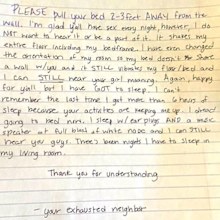 PLEASE pull your bed 2-3 feet AWAY from the
wall. I'm glad y'all have sex every night, However, I do
NOT want to hear it or be a part of it. It shakes my
entire floor including my bedframe. I have even changed
the orientation of my room so my bed doesn't share
a wall w/you and it STILL shakes my floor/bed and
I can STILL hear your gal moaning. Again, happy
for y'all but I have GOT to sleep. I can't
remember the last time I got more than 6 hours of
sleep because your activities are keeping me up. I dread
going to bed now. I sleep w/ear plugs AND a music
speaker at full blast of white noise and I can STILL
hear you guys. There's been nights I have to sleep in
my living room.
Thank you for understanding
- your exhausted neighbor